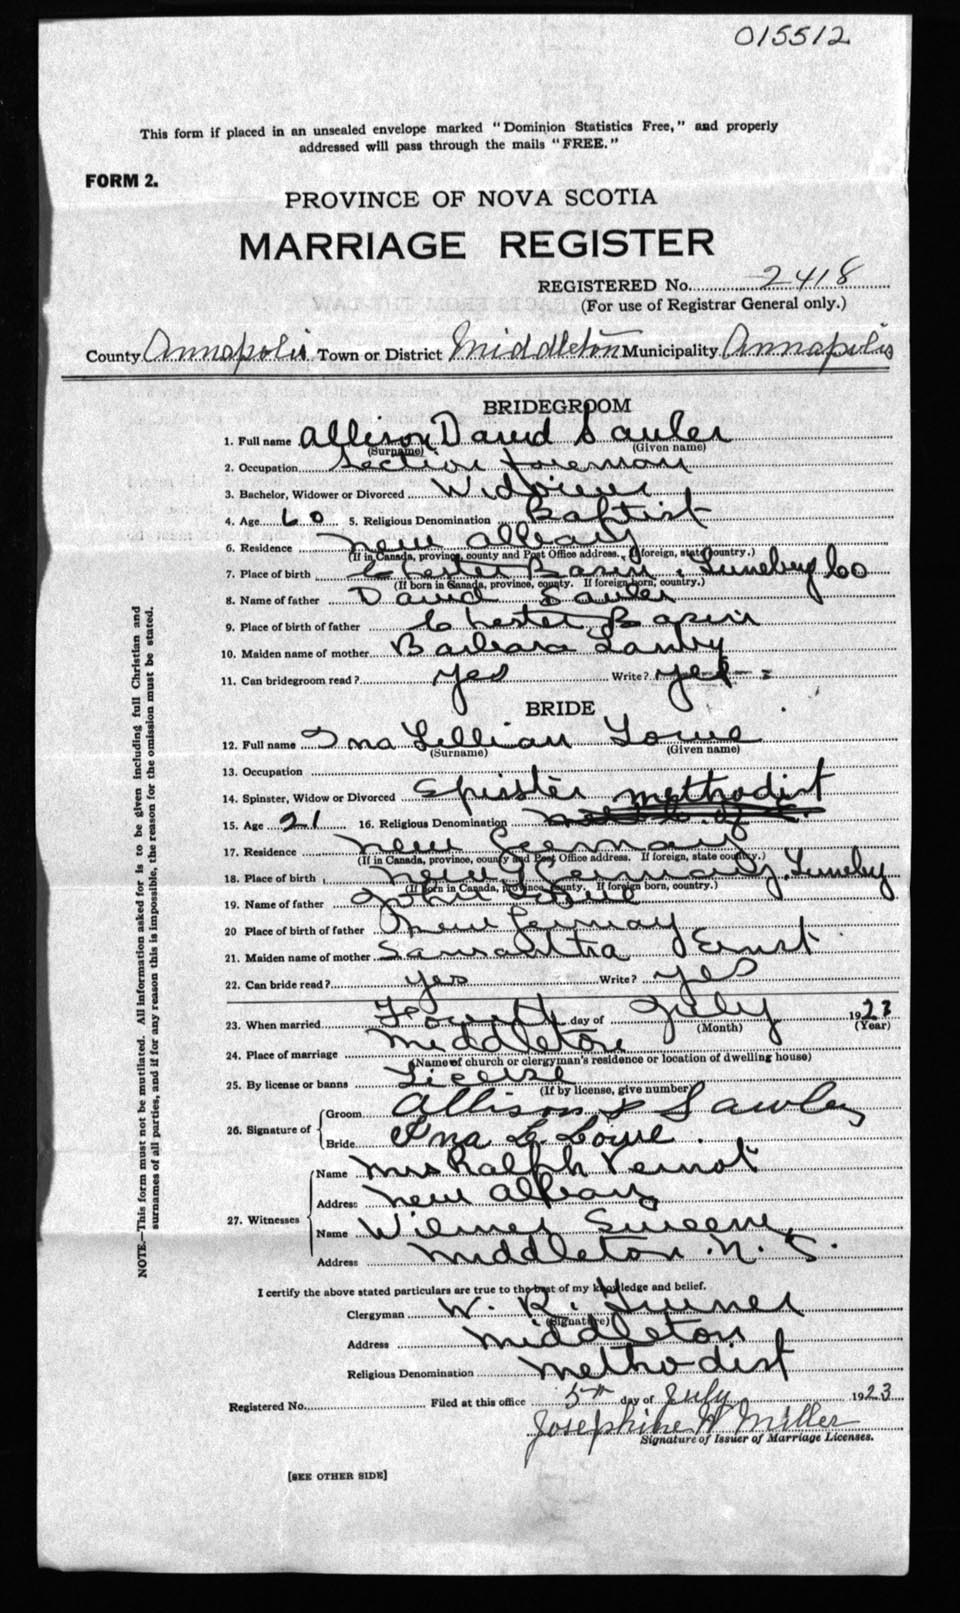 015512
This form if placed in an unsealed envelope marked "Dominion Statistics Free," and properly
addressed will pass through the mails "FREE."
FORM 2.
PROVINCE OF NOVA SCOTIA
MARRIAGE REGISTER
REGISTERED No. 2418
(For use of Registrar General only.)
County Annapolis Town or District Middleton Municipality Annapolis
BRIDEGROOM
1. Full name Allison David Sawler
(Surname) (Given name)
2. Occupation Section foreman
3. Bachelor, Widower or Divorced Widower
4. Age 60 5. Religious Denomination Baptist
6. Residence New Albany
(If in Canada, province, county and Post Office address. If foreign, state country.)
7. Place of birth Chester Basin, Lunebuy Co
(If born in Canada, province, county. If foreign born, country.)
8. Name of father David Sawler
9. Place of birth of father Chester Basin
10. Maiden name of mother Barbara
11. Can bridegroom read? yes Write? yes
BRIDE
12. Full name Ina Lillian Lowe
(Surname) (Given name)
13. Occupation
14. Spinster, Widow or Divorced Spinster Methodist
15. Age 21 16. Religious Denomination
17. Residence New Germany
(If in Canada, province, county and Post Office address. If foreign, state country.)
18. Place of birth New Germany, Luneby
(If born in Canada, province, county. If foreign born, country.)
19. Name of father John Lowe
20 Place of birth of father New Germany
21. Maiden name of mother Samantha Ernst
22. Can bride read? yes Write? yes
23. When married Fourth day of July 1923
(Month) (Year)
24. Place of marriage Middleton
(Name of church or clergyman's residence or location of dwelling house)
25. By license or banns License
(If by license, give number)
26. Signature of Groom Allison D Sawler
Bride Ina L. Lowe.
27. Witnesses Name Mrs Ralph Veinot
Address New Albany
Name Sweeny
Address Middleton. N. S.
I certify the above stated particulars are true to the best of my knowledge and belief.
Clergyman W. R. Turner
(Signature)
Address Middleton
Religious Denomination Methodist
Registered No. Filed at this office 5th day of July 1923
Josephine H Miller
Signature of Issuer of Marriage Licenses.
[SEE OTHER SIDE]
NOTE.—This form must not be mutilated. All information asked for is to be given including full Christian and
surnames of all parties, and if for any reason this is impossible, the reason for the omission must be stated.